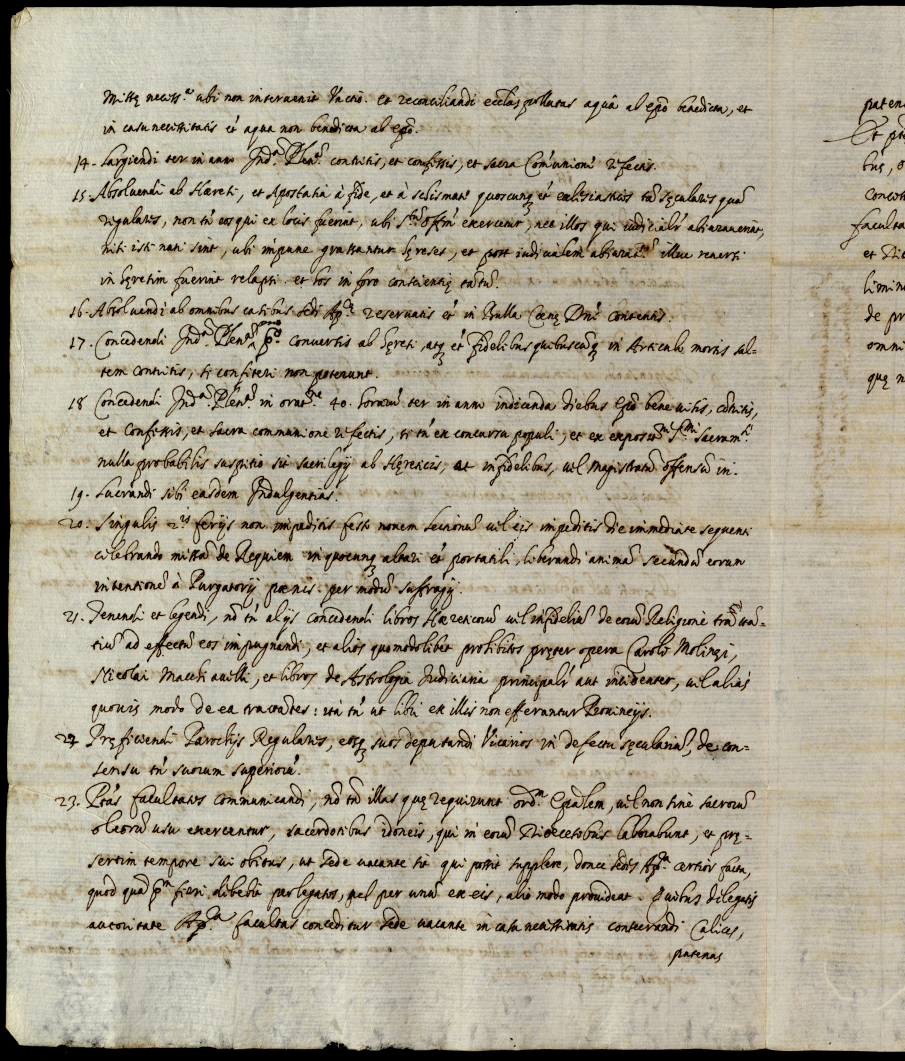 Missę necess.a ubi non interuenit Unctio. et reconciliandi ecclias pollutas aquâ ab epo benedicta, et
in casu necessitatis et aqua non benedicta ab epo.
14. Largiendi ter in anno Ind.m Plen.m contritis, et confessis, et sacra Comunione refectis.
15. Absoluendi ab Hæresi, et Apostasia à fide, et à schismate quoscunq et ecclesiasticos tã sęculares quã
regulares, non tñ eos qui ex locis fuerint, ubi S.tum offm exercent, nec illos qui iudicialr abiurauerint,
nisi isti nati sint, ubi impune grassantur hęreses, et post iudicialem abiurat.nem illuc reuersi
in hęresim fuerint relapsi. et hos in foro conscientię tantũ.
16. Absoluendi ab omnibus casibus Sedi Ap.cę reseruatis et in Bulla Cœnę Dni contentis.
17. Concedendi Ind.m Plen.m conuersis ab hęresi, atq et fidelibus quibuscũq in Articulo mortis sal=
tem contritis, si confiteri non poterunt.
18 Concedendi Ind.m Plen.m in orat.ne 40. horarũ ter in anno indicenda diebus Epo bene uisis, cõtritis,
et Confessis, et sacra communione refectis, si tñ ex concursu populi, et ex exposit.ne S.mi Sacram.ti
nulla probabilis suspitio sit sacrilegij ab Hęreticis, et infidelibus, uel Magistratũ offensũ iri.
19. Lucrandi sibi easdem Indulgentias.
20. Singulis 2.is ferijs non impeditis festo nouem Lectionũ uel eis impeditis die immediate sequenti
celebrando missã de Requiem in quocunq altari et portatili, liberandi animã secundũ eorum
intentionẽ à Purgatorij pœnis per modũ suffragij.
21. Tenendi et legendi, nõ tñ alijs concedendi libros Hæreticorũ uel infideliũ de eorũ Religione tractan=
tiũ ad effectũ eos impugnandi, et alios quomodolibet prohibitos pręter opera Caroli Molinęi,
Nicolai Macchiauelli, et libros de Astrologia Iudiciaria principalr aut incidenter, uel aliàs
quouis modo de ea tractãtes: ità tñ ut libri ex illis non efferantur Prouincijs.
22 Pręficiendi Parochijs Regulares, eosq suos deputandi Vicarios in defectu sęculariũ, de con=
sensu tñ suorum superiorũ.
23. Ptas facultates communicandi, nõ tñ illas quę requirunt ord.m Epalem, uel non sine sacrorũ
oleorũ usu exercentur, sacerdotibus idoneis, qui in eorũ Diœcesibus laborabunt, et prę=
sertim tempore sui obitus, ut sede uacante sit qui possit supplere, donec Sedes Ap.ca certior facta,
quod quã p.m fieri debebit per legatos, uel per unũ ex eis, alio modo prouideat. Quibus delegatis
auctoritate Ap.ca facultas conceditur sede uacante in casu necessitatis consecrandi Calices,
patenas
paten
Et p
bus, o
faculta
et Dic
limin
de pr
omni
quę n